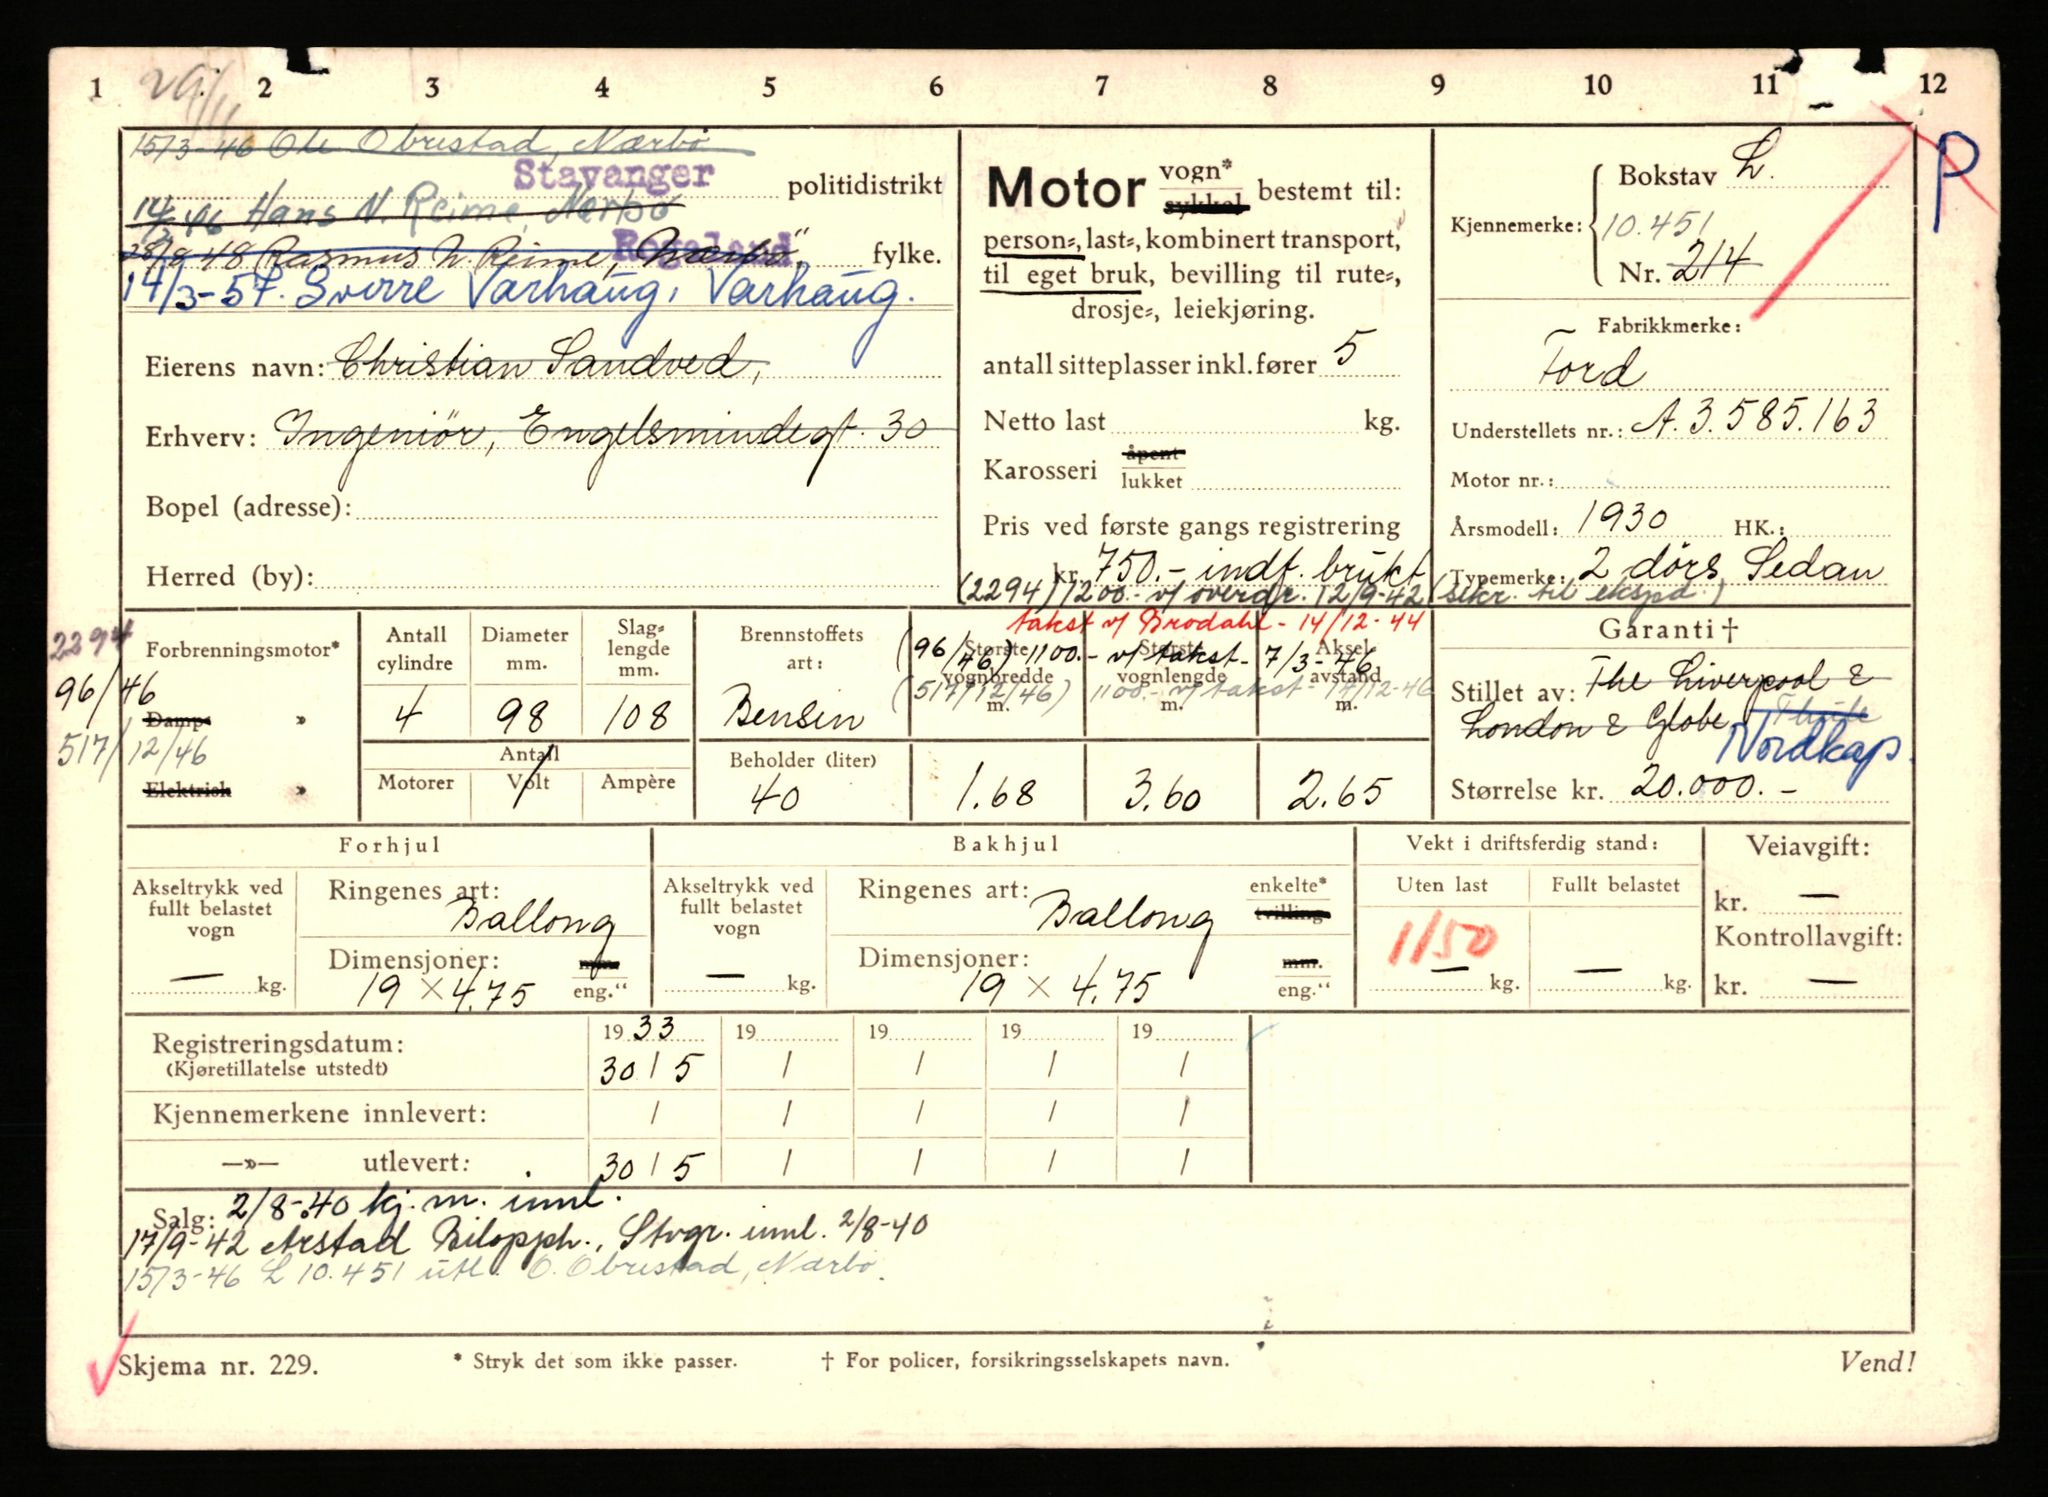 1 2 3 4 5 6 7 8 9 10 11 12
29/11
15/3-46 Ole Obrestad, Nærbø
Stavanger politidistrikt
14/2 46 Hans N. Reime, Nærbø
Rogaland fylke.
28/9 48 Rasmus N. Reime, Nærbø
14/3-57. Sverre Varhaug, Varhaug.
Eierens navn: Christian Sandved,
Erhverv: Ingeniör, Engelsmindegt. 30
Bopel (adresse):
Herred (by):
Motor vogn* sykkel bestemt til:
person-, last-, kombinert transport,
til eget bruk, bevilling til rute-,
drosje-, leiekjøring.
antall sitteplasser inkl. fører 5
Netto last kg.
Karosseri åpent lukket
Pris ved første gangs registrering
kr. 750.- indf. brukt
(2294) 1200.- v/ overdr. 12/9-42 (sekr. til ekspd.)
takst v/ Brodahl - 14/12-44
(96/46) 1100.- v/ takst - 7/3-46
(517/12/46) 1100.- v/ takst - 17/12-46
P
Bokstav L.
Kjennemerke: 10.451
Nr. 214
Fabrikkmerke:
Ford
Understellets nr.: A.3.585.163
Motor nr.:
Årsmodell: 1930 HK.:
Typemerke: 2 dörs Sedan
2294
96/46
517/12/46
Forbrenningsmotor*
Damp- »
Elektrisk »
Antall cylindre
4
Diameter mm.
98
Slag-lengde mm.
108
Antall
Motorer Volt Ampère
Brennstoffets art:
Bensin
Beholder (liter)
40
Største vognbredde m.
1.68
Største vognlengde m.
3.60
Aksel avstand m.
2.65
Garanti †
Stillet av: The Liverpool &
London & Globe
Nordkap.
Størrelse kr. 20.000.-
Forhjul
Akseltrykk ved fullt belastet vogn
— kg.
Ringenes art:
Ballong
Dimensjoner: mm.
19 × 4.75 eng."
Bakhjul
Akseltrykk ved fullt belastet vogn
— kg.
Ringenes art: enkelte*
Ballong tvilling-
Dimensjoner: mm.
19 × 4.75 eng."
Vekt i driftsferdig stand:
Uten last Fullt belastet
1150
— kg. — kg.
Veiavgift:
kr. —
Kontrollavgift:
kr. —
Registreringsdatum: 1933 19 19 19 19
(Kjøretillatelse utstedt) 30 / 5 / / / /
Kjennemerkene innlevert: / / / / /
—»— utlevert: 30 / 5 / / / /
Salg: 2/8-40 kj.m. innl.
17/9-42 Arstad Bilopph., Stvgr. innl. 2/8-40
15/3-46 L 10.451 utl. O. Obrestad, Nærbø.
Skjema nr. 229. * Stryk det som ikke passer. † For policer, forsikringsselskapets navn. Vend!